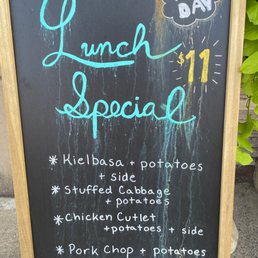 DAY
Lunch
$11
Special
* Kielbasa + potatoes
+ side
* Stuffed Cabbage
+ potatoes
* Chicken Cutlet
+potatoes + side
* Pork Chop + potatoes